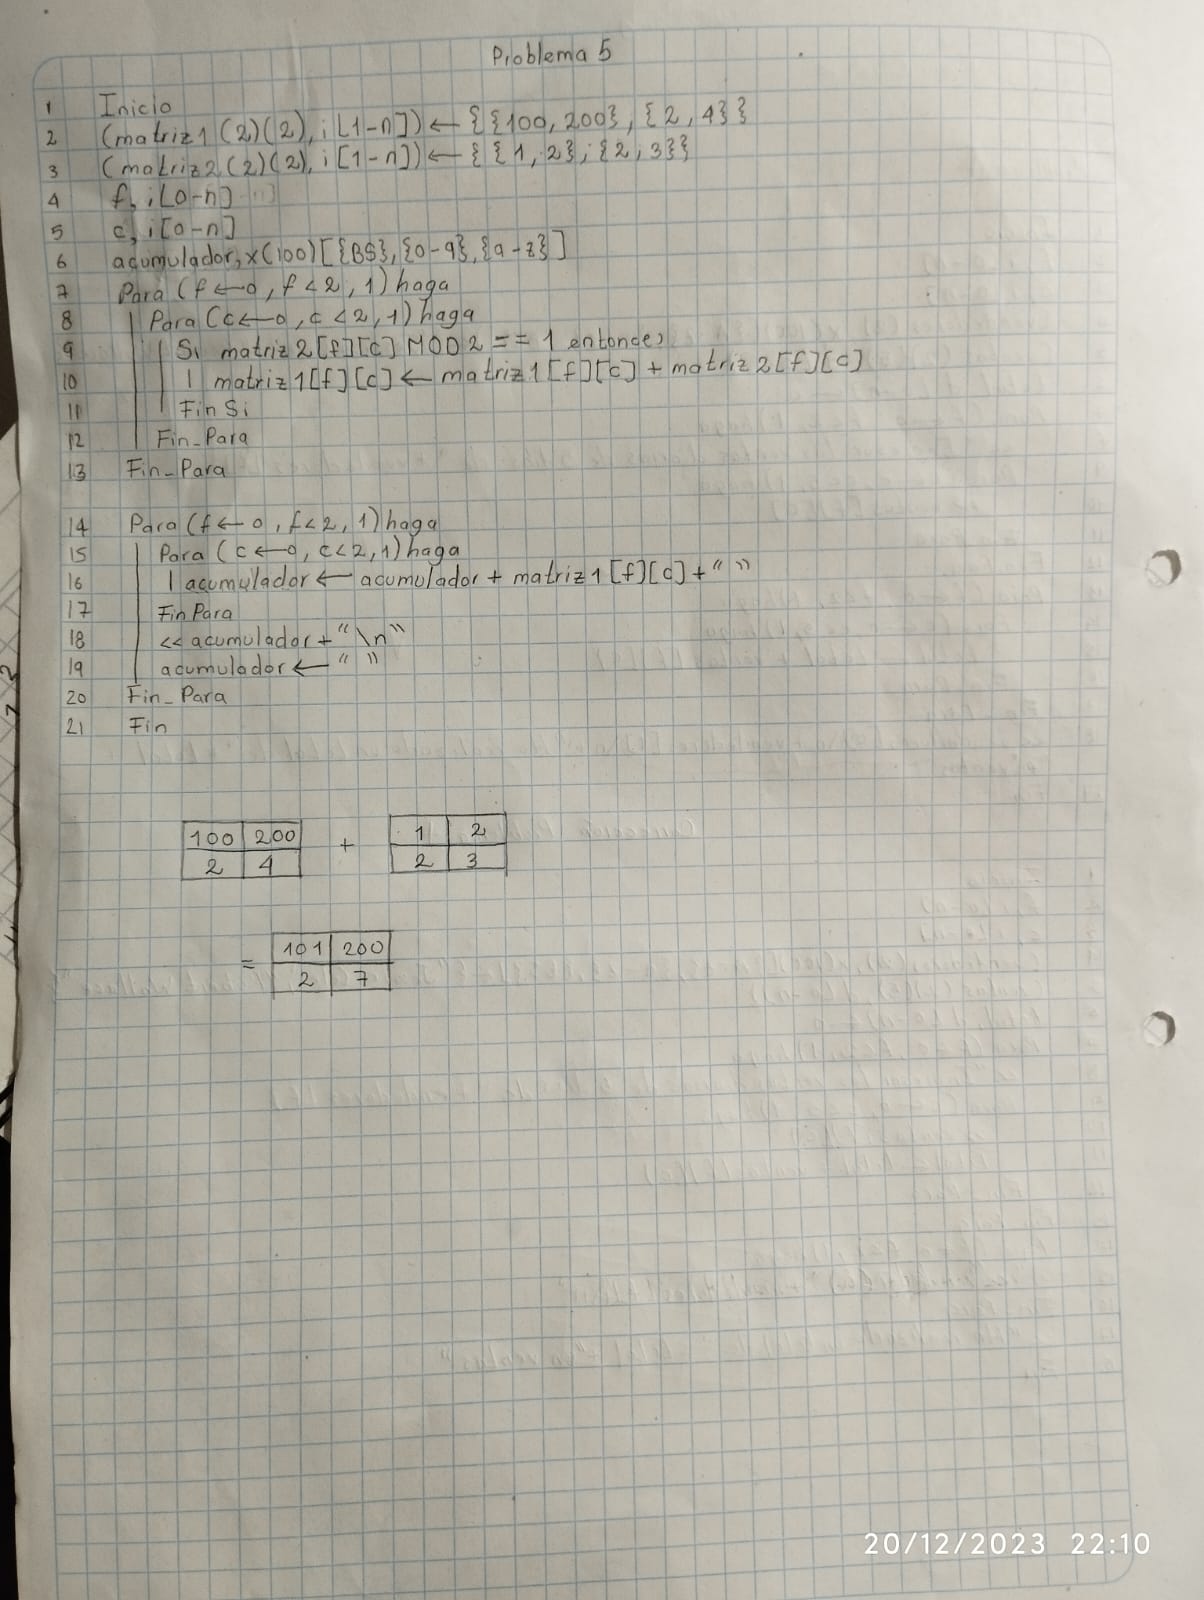 Problema 5
1 Inicio
2 (matriz1(2)(2), i[1-n]) ← {{100, 200}, {2, 4}}
3 (matriz2(2)(2), i[1-n]) ← {{1, 2}, {2, 3}}
4 f, i[0-n]
5 c, i[0-n]
6 acumulador, x(100)[{BS}, {0-9}, {a-z}]
7 Para (f ← 0, f < 2, 1) haga
8 Para (c ← 0, c < 2, 1) haga
9 Si matriz2[f][c] MOD 2 == 1 entonces
10 matriz1[f][c] ← matriz1[f][c] + matriz2[f][c]
11 Fin Si
12 Fin_Para
13 Fin_Para
14 Para (f ← 0, f < 2, 1) haga
15 Para (c ← 0, c < 2, 1) haga
16 acumulador ← acumulador + matriz1[f][c] + " "
17 Fin Para
18 << acumulador + "\n"
19 acumulador ← " "
20 Fin_Para
21 Fin
100 200 + 1 2
2 4 2 3
= 101 200
2 7
20/12/2023 22:10